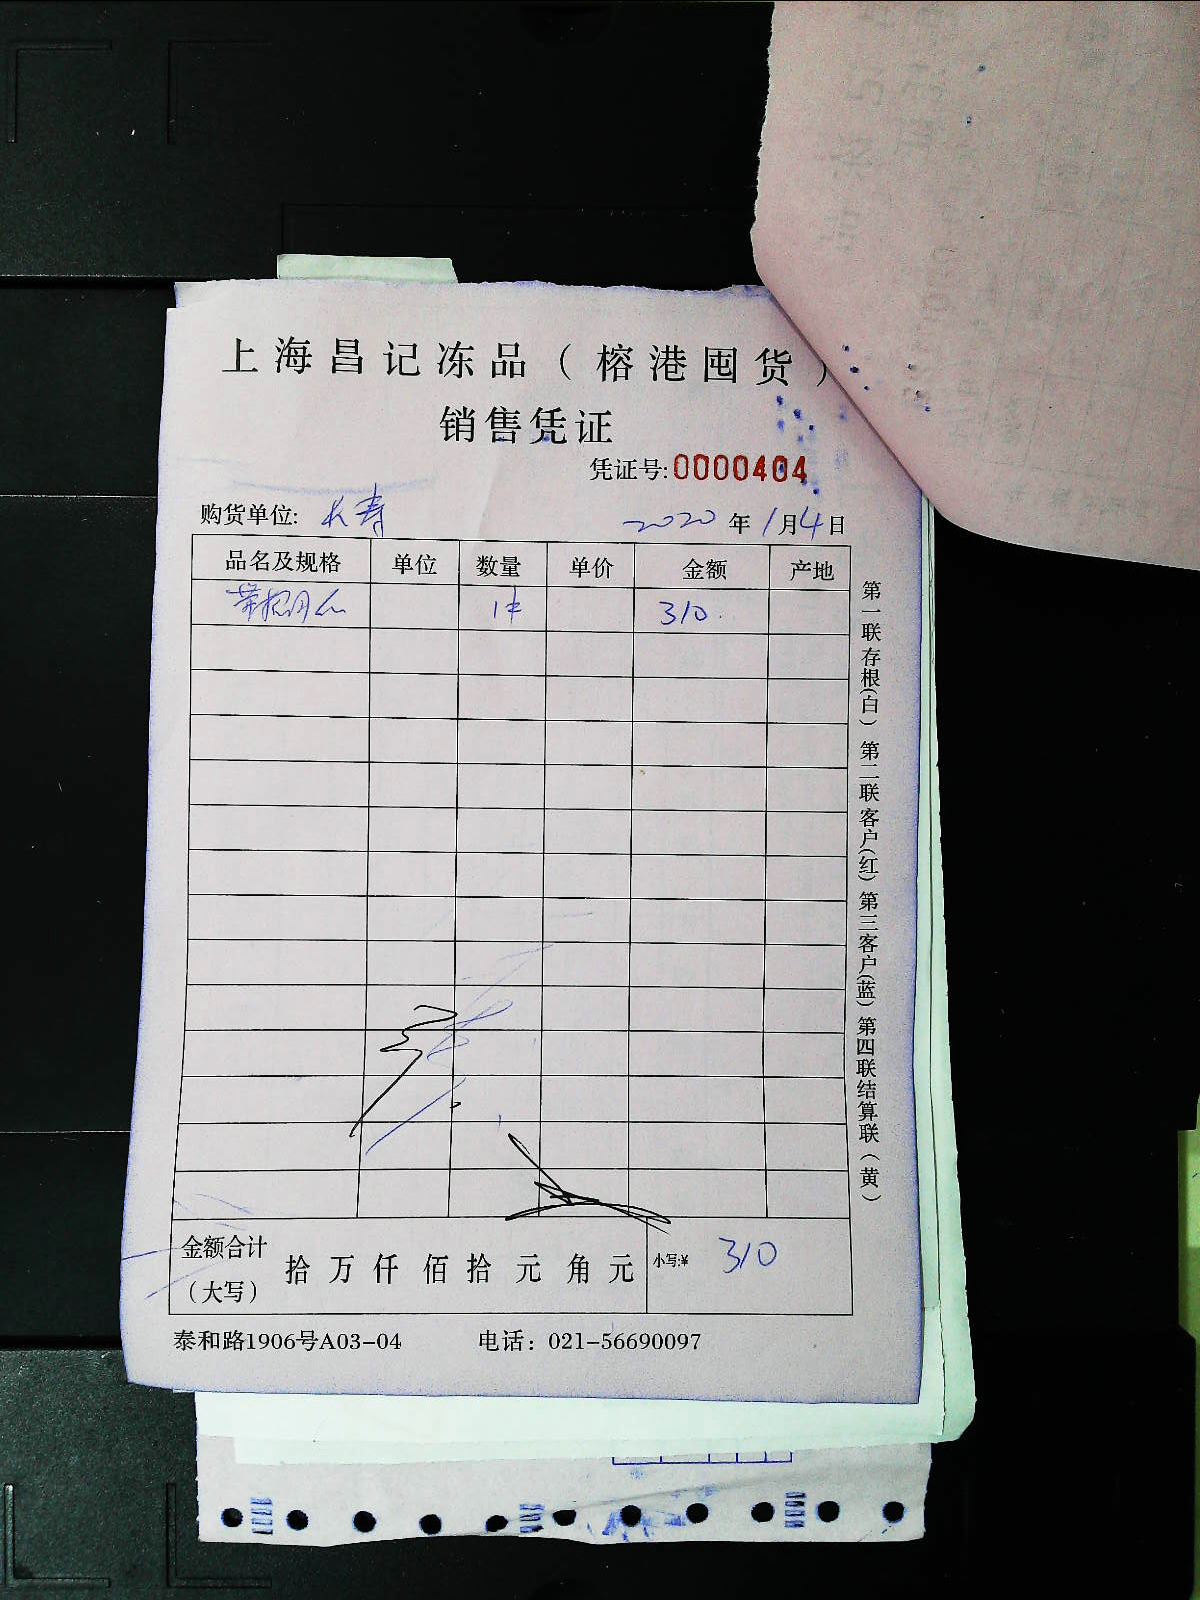 上海昌记冻品（榕港囤货）
销售凭证
凭证号:0000404
购货单位: 长寿 2020年1月4日
品名及规格 单位 数量 单价 金额 产地
1件 310
金额合计（大写） 拾 万 仟 佰 拾 元 角 元 小写:¥ 310
泰和路1906号A03-04 电话：021-56690097
第一联存根(白) 第二联客户(红) 第三客户(蓝) 第四联结算联（黄）